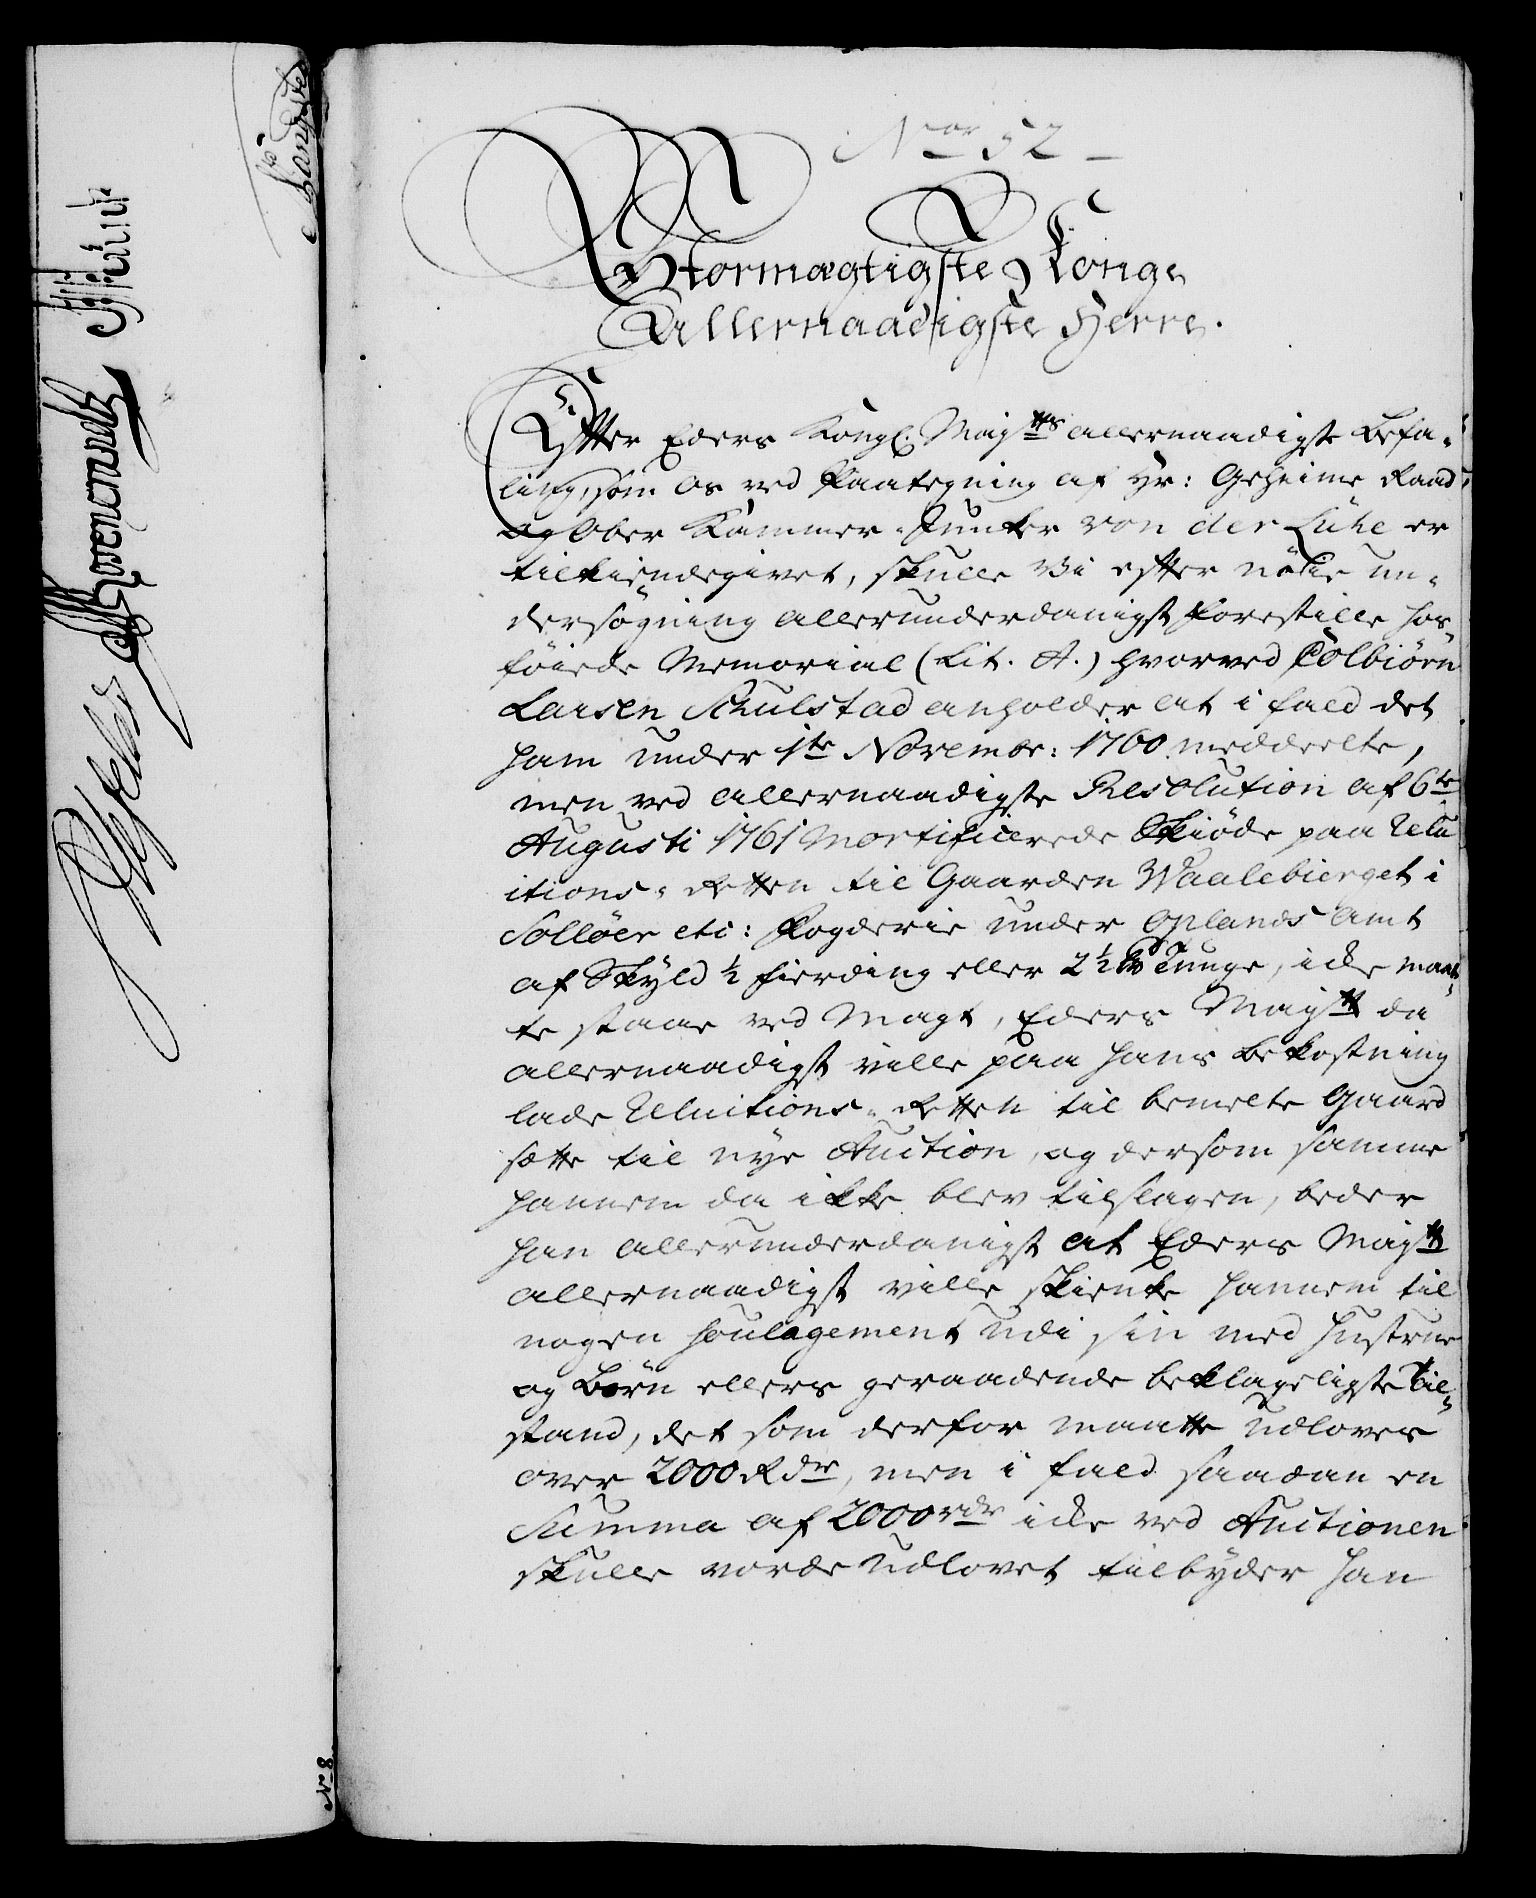 Nor 52
Stormægtigste Konge
Allernaadigste Herre.
Efter Eders Kongl. Maytts allernaadigste Befa-
ling, som os ved Paategning af Hr: Geheime Raad
og Ober Kammer-Junker von der Lühe er
tilkiendegivet, skulle Vi efter nöie un-
dersögning allerunderdanigst forestille hos-
föiede Memorial (Lit. A.) hvorved Colbiörn
Larsen Schulstad anholder at i fald det
ham under 1te Novembr: 1760 meddeelte,
men ved allernaadigste Resolution af 6te
Augusti 1761 Mortificerede Skiöde paa Relu
itions-Retten til Gaarden Waalebierget i
Sollöer etc: Fogderie under Oplands Amt
af Skyld ½ fierding eller 2½ Tunge, icke maat-
te staae ved Magt, Eders Maytt da
allernaadigst ville paa hans Bekostning
lade Reluitions-Retten til bemelte Gaard
sætte til nye Auction, og dersom samme
hannem da ikke blev tilslagen, beder
han allerunderdanigst at Eders Maytt
allernaadigst ville skienke hannem til
nogen Soulagement udi sin med Hustrue
og Börn ellers geraadende beklageligste Til-
stand, det som derfor maatte udloves
over 2000 Rdr, men i fald saadan en
Summa af 2000 rdr icke ved Auctionen
skulle vorde udlovet tilbyder han
N 8